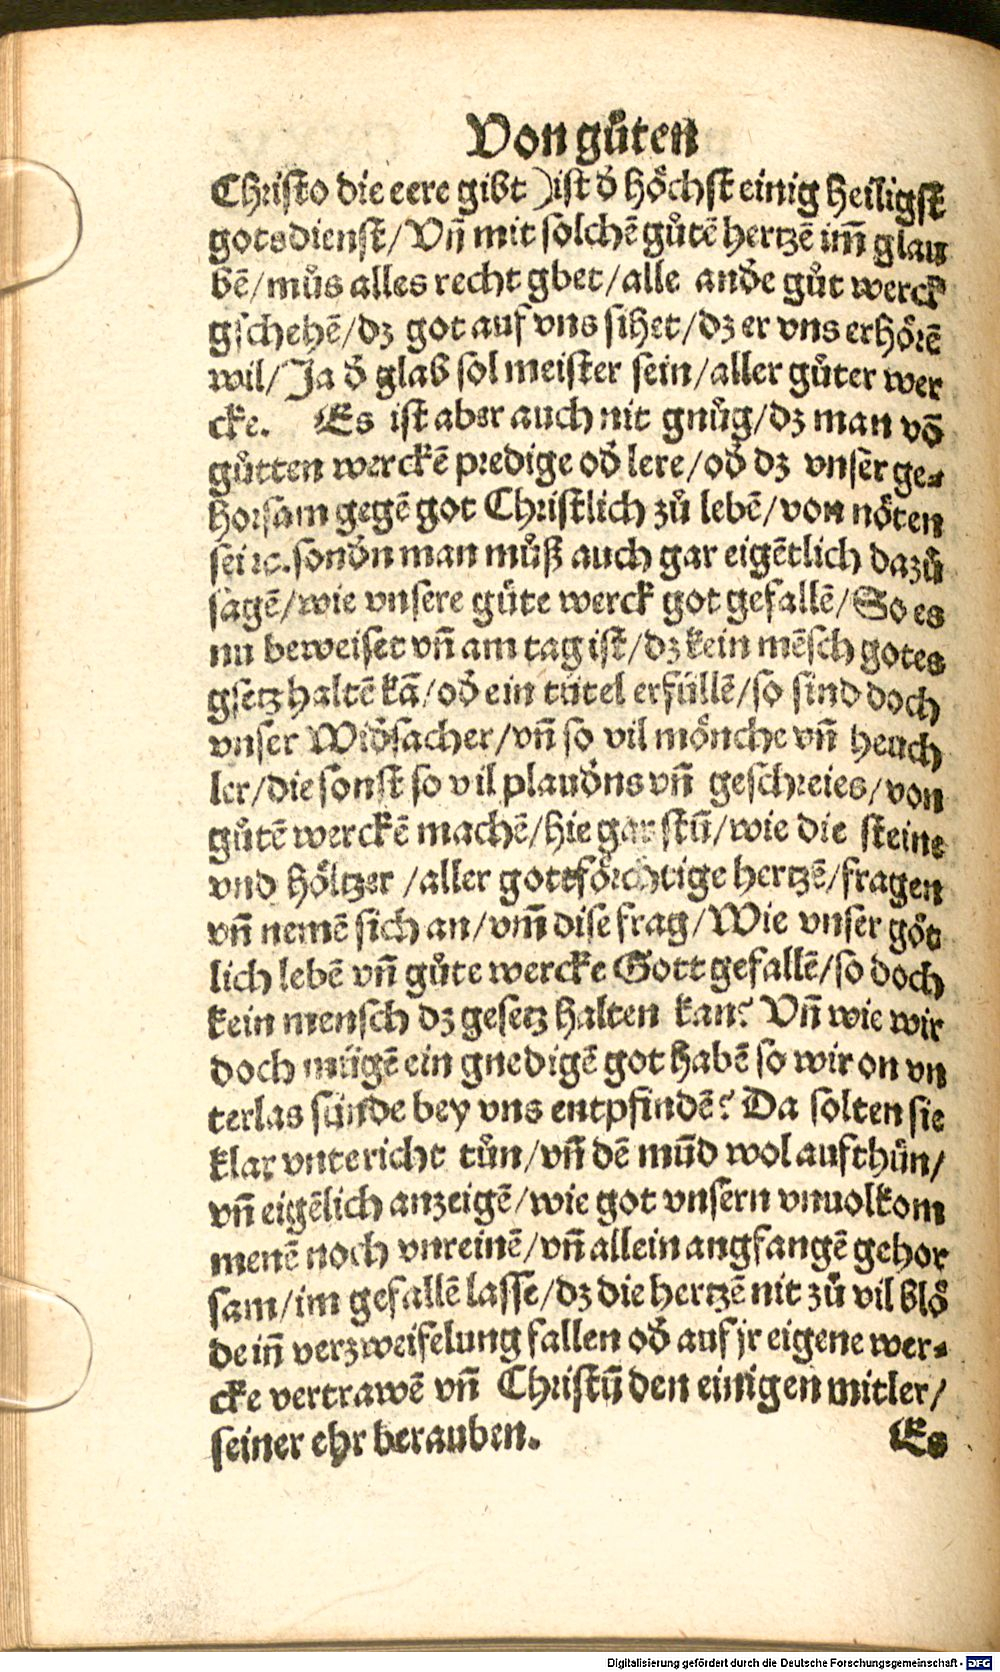 Von gůten
Christo die eere gibt )ist d̕ höchst einig heiligst
gotsdienst/Vñ mit solchẽ gůtẽ hertzẽ im̃ glau
bẽ/můs alles recht gbet/alle and̕e gůt werck
gschehẽ/dz got auf vns sihet/dz er vns erhörẽ
wil/Ja d̕ glab sol meister sein/aller gůter wer
cke. Es ist aber auch nit gnůg/dz man võ
gůtten werckẽ predige od̕ lere/od̕ dz vnser ge⸗
horsam gegẽ got Christlich zů lebẽ/von nöten
sei ꝛc.sond̕n man můß auch gar eigẽtlich dazů
sagẽ/wie vnsere gůte werck got gefallẽ/So es
nu beweiset vñ am tag ist/dz kein mẽsch gotes
gsetz haltẽ kã/od̕ ein tütel erfüllẽ/so sind doch
vnser Wid̕sacher/vñ so vil mönche vñ heuch
ler/die sonst so vil plaud̕ns vñ geschreies/von
gůtẽ werckẽ machẽ/hie gar stũ/wie die steine
vnd höltzer /aller gottförchtige hertzẽ/fragen
vñ nemẽ sich an/vm̃ dise frag/Wie vnser göt
lich lebẽ vñ gůte wercke Gott gefallẽ/so doch
kein mensch dz gesetz halten kan? Vñ wie wir
doch mügẽ ein gnedigẽ got habẽ so wir on vn
terlas sünde bey vns entpfindẽ? Da solten sie
klar vntericht tůn/vñ dẽ mũd wol aufthůn/
vñ eigẽlich anzeigẽ/wie got vnsern vnuolkom
menẽ noch vnreinẽ/vñ allein angfangẽ gehor
sam/im gefallẽ lasse/dz die hertzẽ nit zů vil blö
de iñ verzweifelung fallen od̕ auf jr eigene wer⸗
cke vertrawẽ vñ Christũ den einigen mitler/
seiner ehr berauben. Es
Digitalisierung gefördert durch die Deutsche Forschungsgemeinschaft - DFG